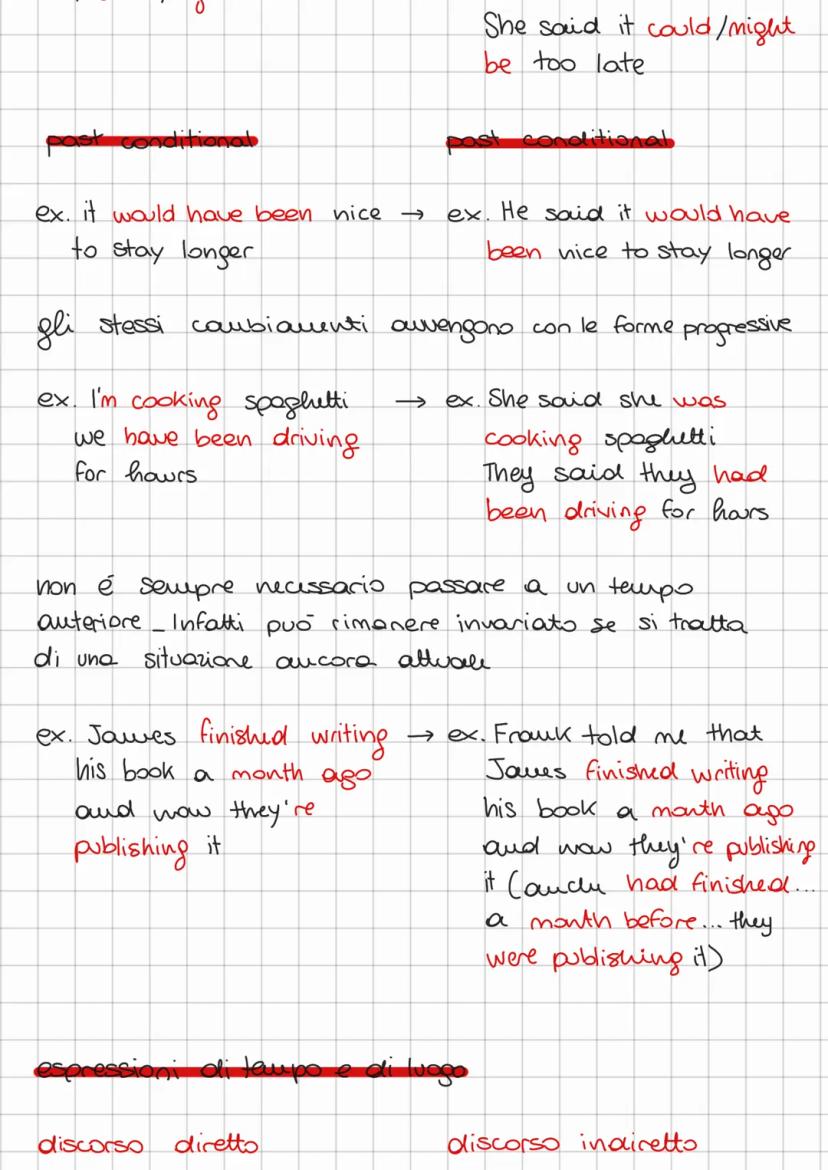 She said it could/might
be too late
past conditional
past conditional
ex. it would have been nice →
to stay longer
ex. He said it would have
been nice to stay longer
gli stessi cambiamenti avvengono con le forme progressive
ex. I'm cooking spaghetti →
we have been driving
for hours
ex. She said she was
cooking spaghetti
They said they had
been driving for hours
non é sempre necessario passare a un tempo
anteriore_Infatti può rimanere invariato se si tratta
di una situazione ancora attuale
ex. James finished writing →
his book a month ago
and now they're
publishing it
ex. Frank told me that
James finished writing
his book a month ago
and now they're publishing
it (anche had finished...
a month before... they
were publishing it)
espressioni di tempo e di luogo
discorso diretto
discorso indiretto